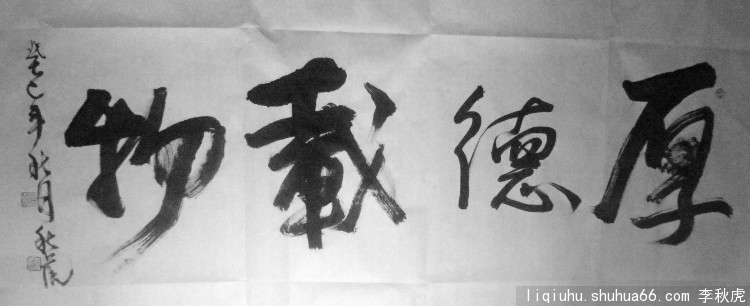 厚德載物
癸巳年秋月秋虎
liqiuhu.shuhua66.com 李秋虎